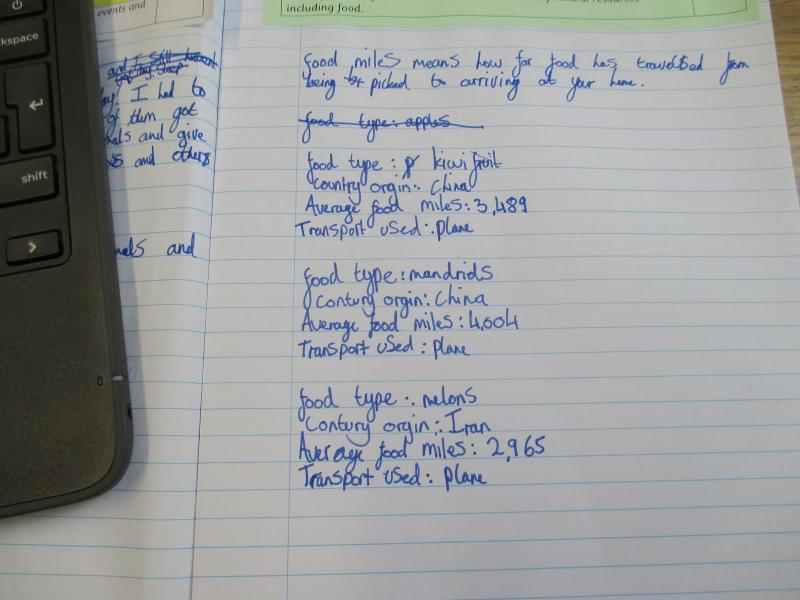 events and
including food.
kspace
shift
and I still haven't
I had to
of them got
and give
and others
and
food miles means how far food has travelled from
being picked to arriving at your home.
food type: apples
food type: kiwi fruit
Country orgin: China
Average food miles: 3,489
Transport used: plane
food type: mandrids
Contury orgin: China
Average food miles: 4,004
Transport used: plane
food type: melons
Contury orgin: Iran
Average food miles: 2,965
Transport used: plane